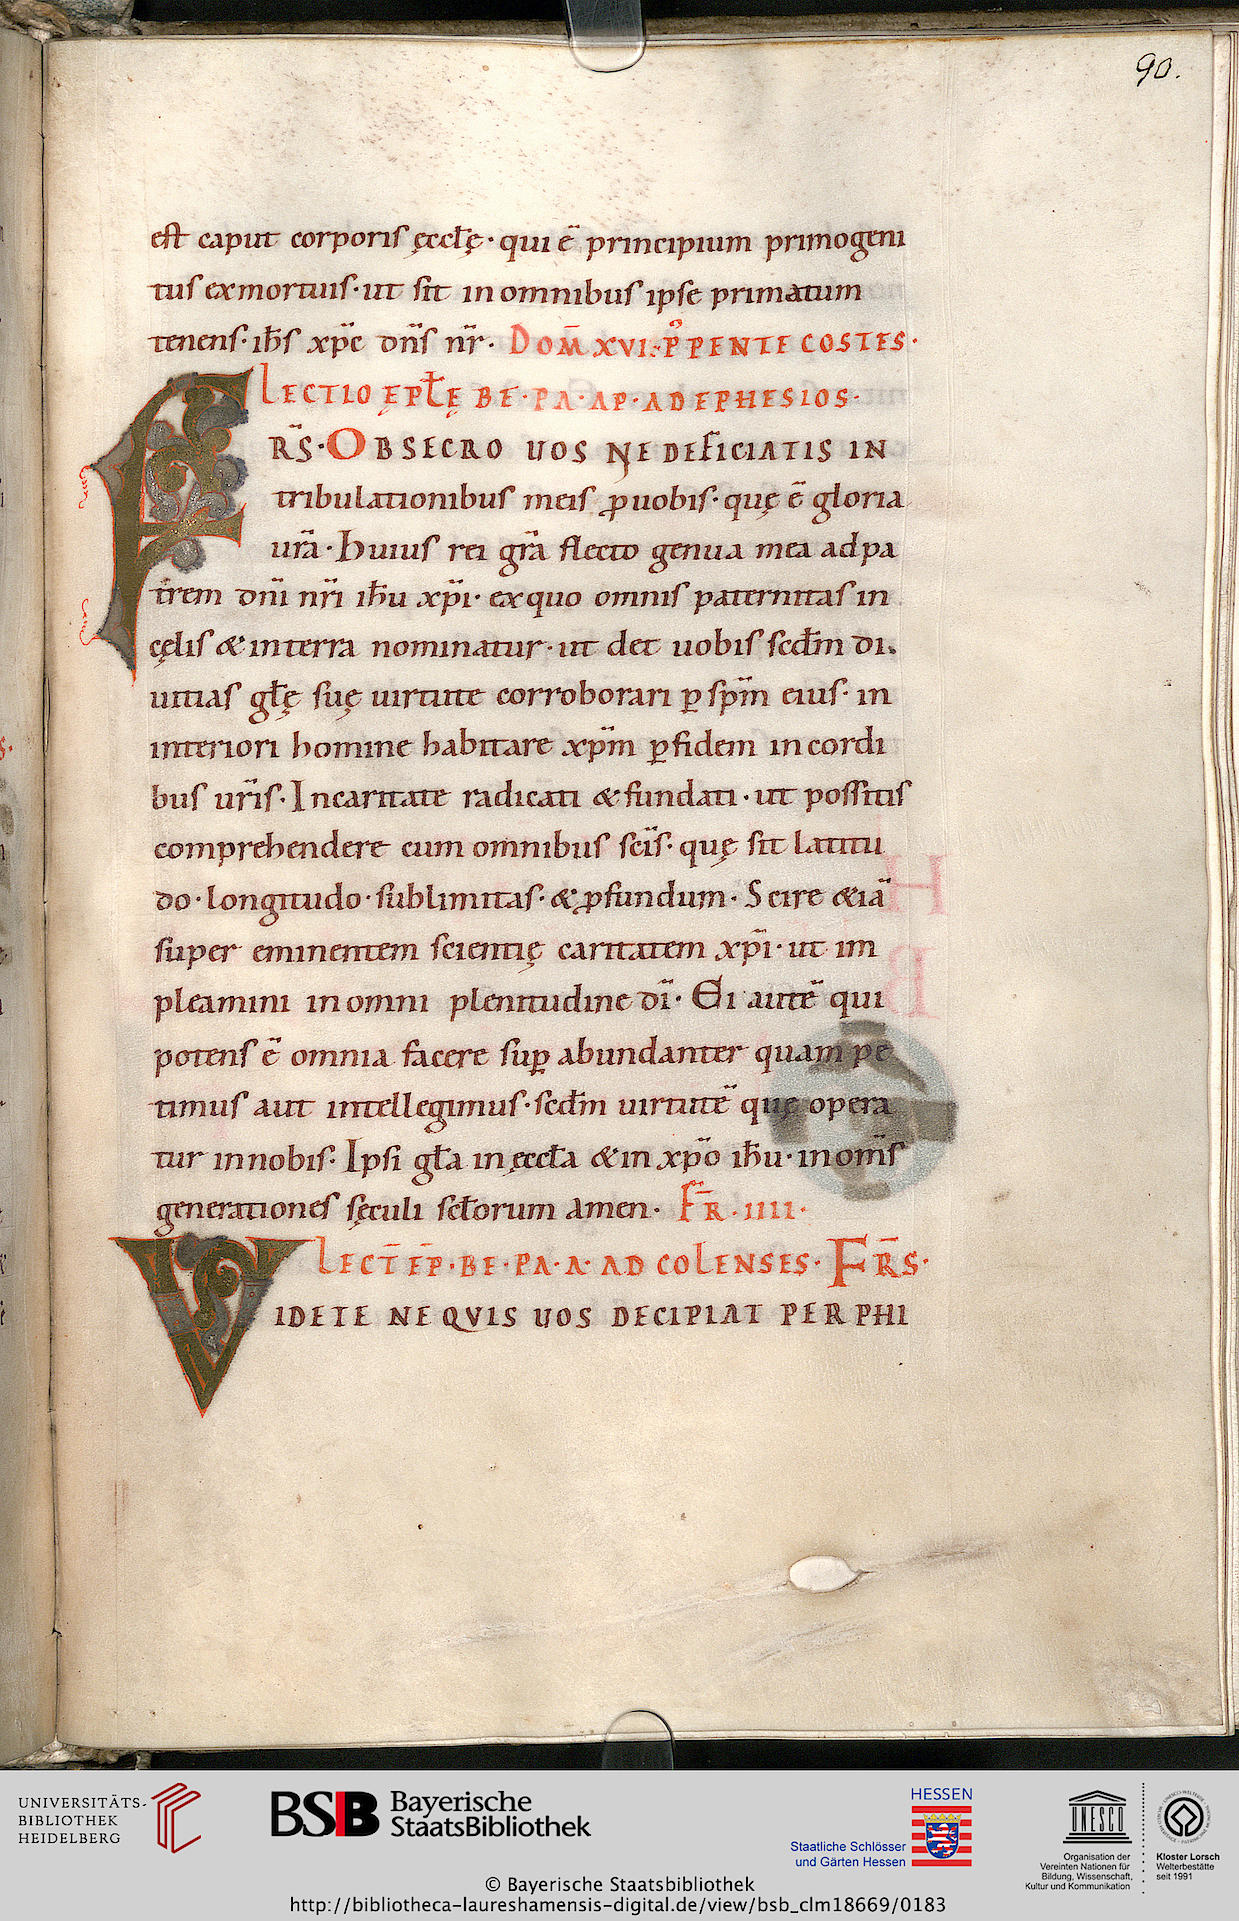 90.
est caput corporis ęccłę· qui ē principium primogeni
tus exmortuis· ut sit in omnibus ipse primatum
tenens· ihs xp̄c dn̄s nr̄. DOM̄ XVI· P̊ PENTECOSTES·
LECTIO ĘPŁĘ BE·PA·AP·AD EPHESIOS·
FRS̄· OBSECRO UOS NE DEFICIATIS IN
tribulationibus meis ꝓuobis· quę ē gloria
urā· Huius rei grā flecto genua mea ad pa
trem dn̄i nr̄i ihu xp̄i· ex quo omnis paternitas in
cęlis & in terra nominatur· ut det uobis scdm di
uitias głę suę uirtute corroborari ꝑ spm̄ eius· in
interiori homine habitare xpm̄ ꝑ fidem in cordi
bus ur̄is· In caritate radicati & fundati· ut possitis
comprehendere cum omnibus scīs· quę sit latitu
do· longitudo· sublimitas· & ꝓfundum· Scire &iā
super eminentem scientię caritatem xp̄i· ut im
pleamini in omni plenitudine dī· Ei autē qui
potens ē omnia facere suꝑ abundanter quam pe
timus aut intellegimus· scdm uirtutē quę opera
tur in nobis· Ipsi gła in ęccła & in xp̄o ihu· in om̄s
generationes sęculi scłorum amen· FR̄· IIII·
LECT̄ EP̄·BE·PA·A·AD COLENSES· FR̄S·
VIDETE NE QVIS UOS DECIPIAT PER PHI
UNIVERSITÄTS-
BIBLIOTHEK
HEIDELBERG
BSB Bayerische
StaatsBibliothek
HESSEN
Staatliche Schlösser
und Gärten Hessen
UNESCO
Organisation der
Vereinten Nationen für
Bildung, Wissenschaft,
Kultur und Kommunikation
Kloster Lorsch
Welterbestätte
seit 1991
© Bayerische Staatsbibliothek
http://bibliotheca-laureshamensis-digital.de/view/bsb_clm18669/0183